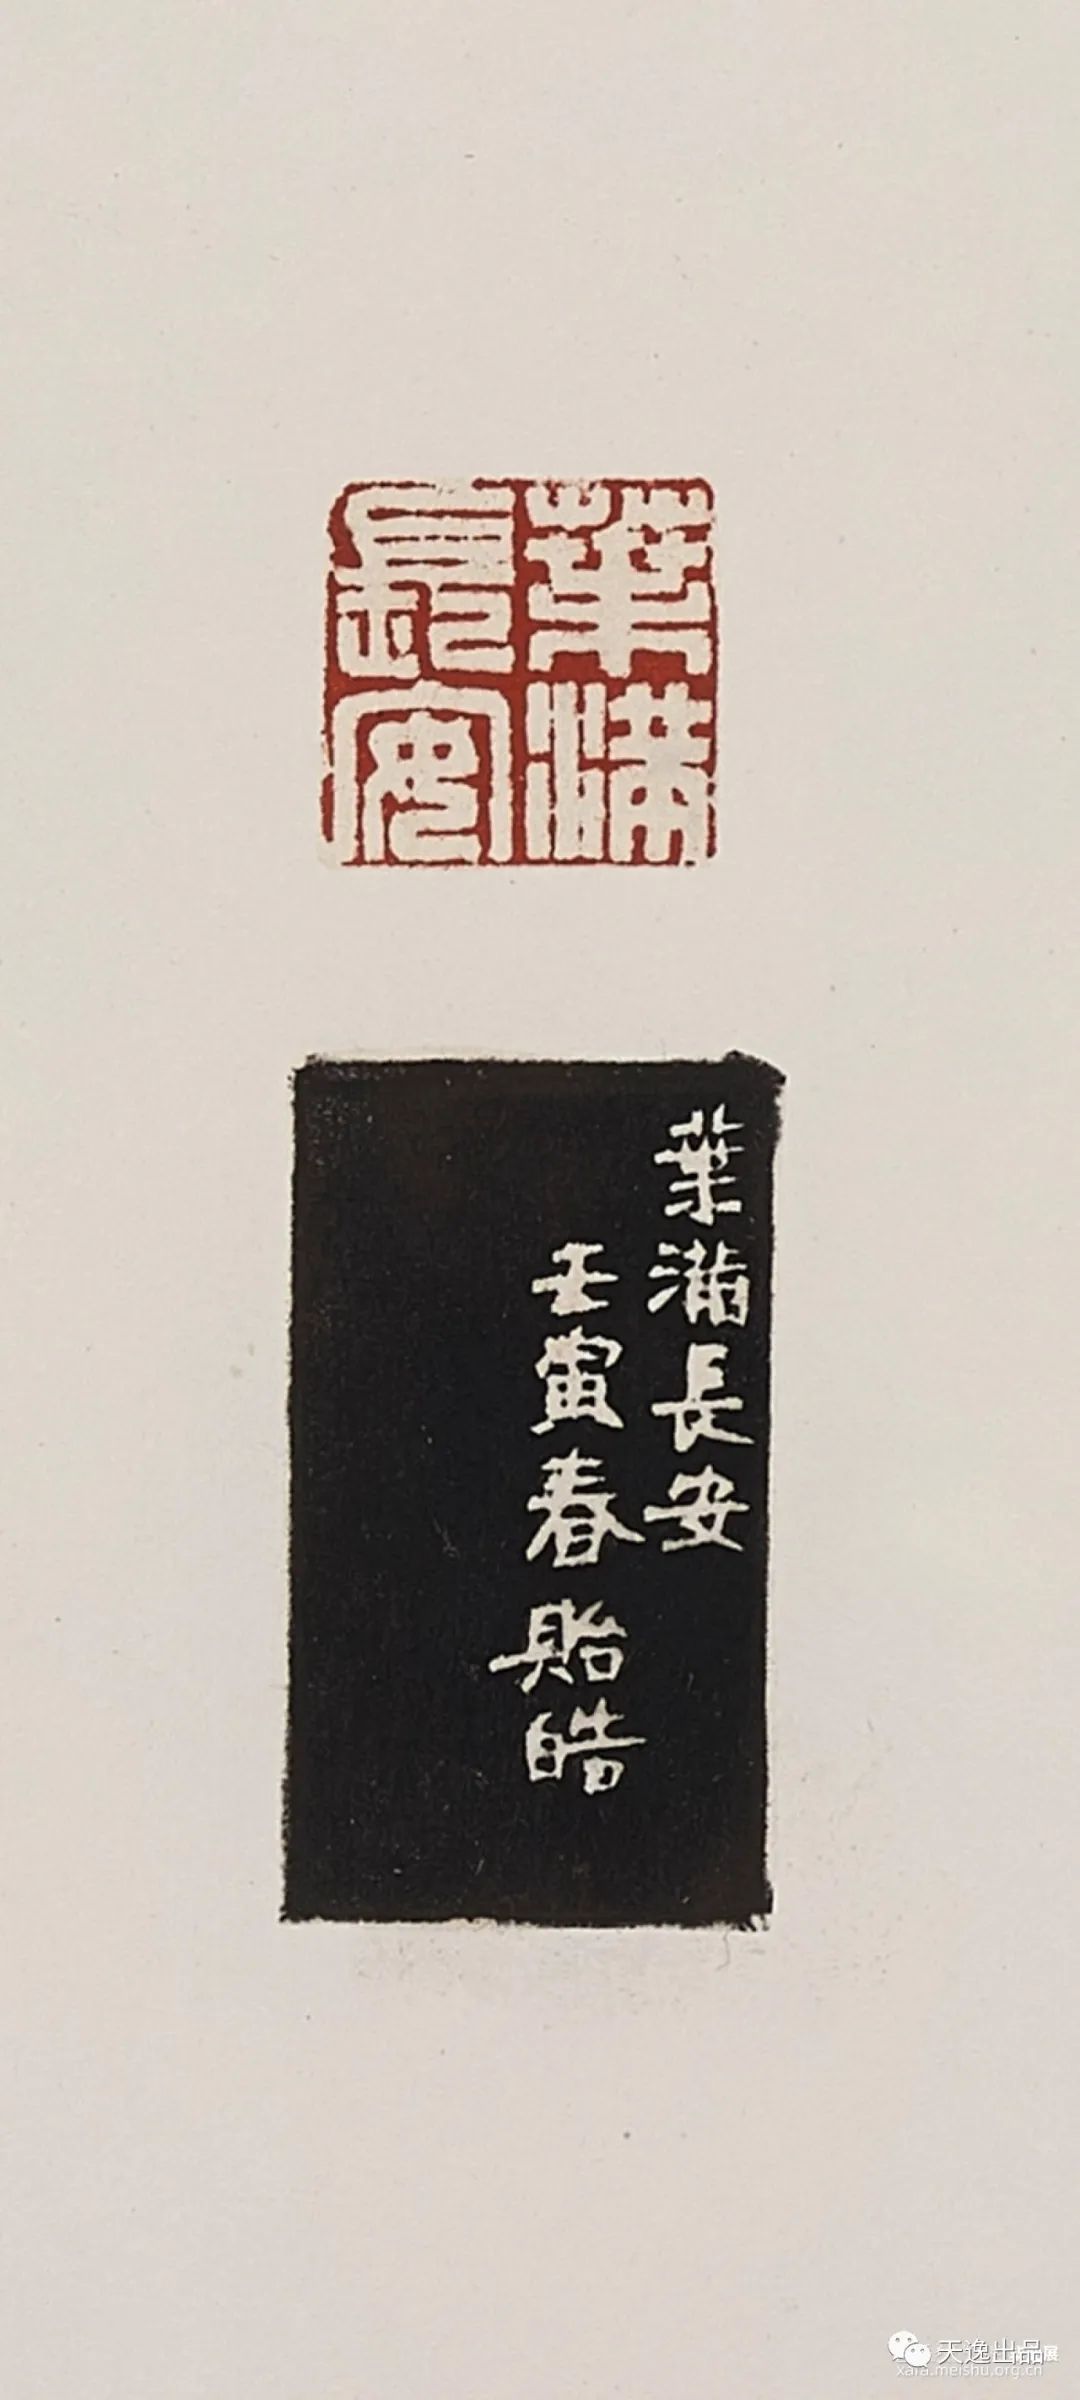 葉滿長安
葉滿長安
壬寅春 貽皓
天逸出品
展
xafa.meishu.org.cn